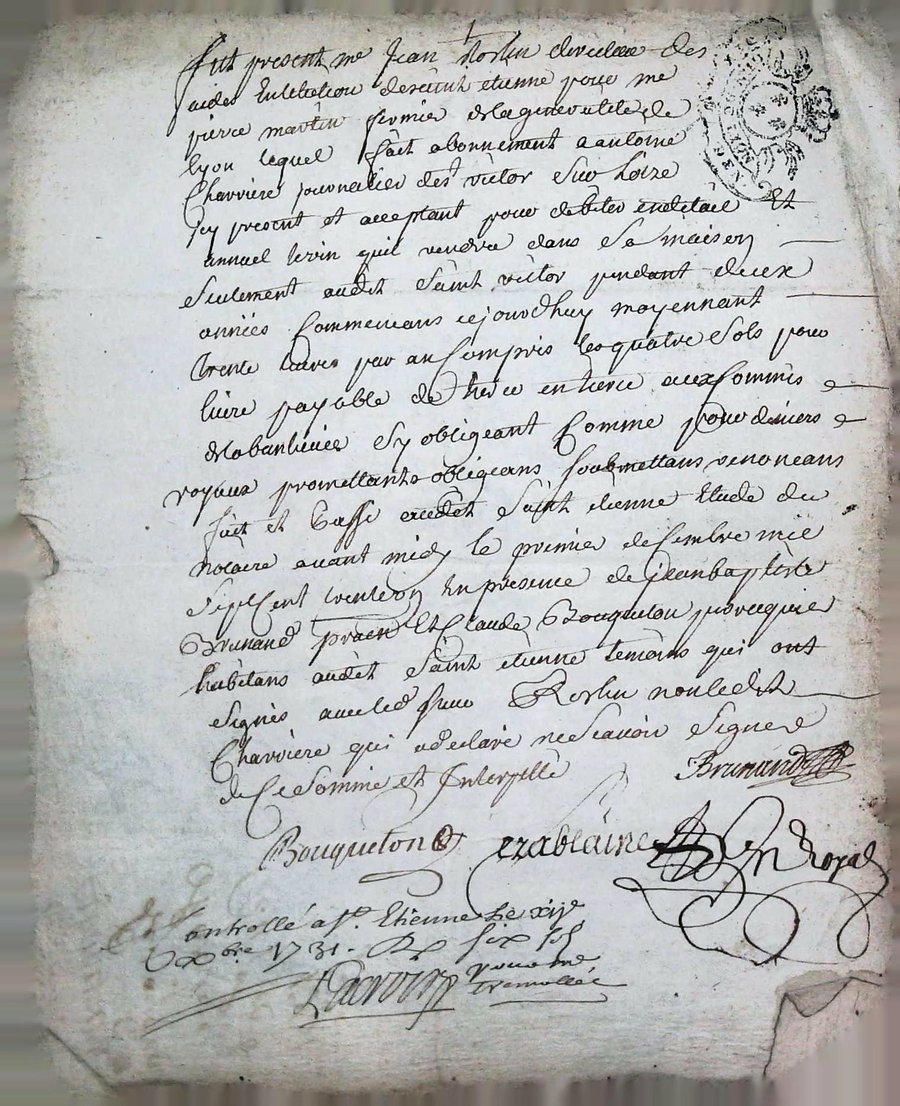 Fut present me Jean Roslin directeur des
aides En lélection de saint étienne pour me
pierre martin fermier de la generalité de
lyon lequel fait abonnement a antoine
Charriere journalier de st victor sur Loire
icy present et acceptant pour debiter en detail Et
annuel le vin quil vendra dans Sa maison
Seulement audit Saint victor pendant deux
années Commencans cejourdhuy moyennant
trente livres par an Compris les quatre Sols pour
livre payable de tierce en tierce aux Commis
de la banlieüe Sy obligeant Comme pour deniers
royaux promettants obligeans soubmettans renonceans
fait et Passé audit Saint étienne Etude du
notaire avant midy le premier decembre mil
Sept Cent trente un En presence de jean baptiste
Brunand praen Et Claude Bouqueton perruquier
habitans audit Saint étienne temoins qui ont
Signés avec led sieur Roslin non ledit
Charriere qui a declaré ne Scavoir Signer
de Ce Sommé et Interpellé
Brunand
Bouqueton erablaine Nre royal
Controllé a st. Etienne Le xije
xbre 1731. R six sols
Lacroix pour me
tremollée